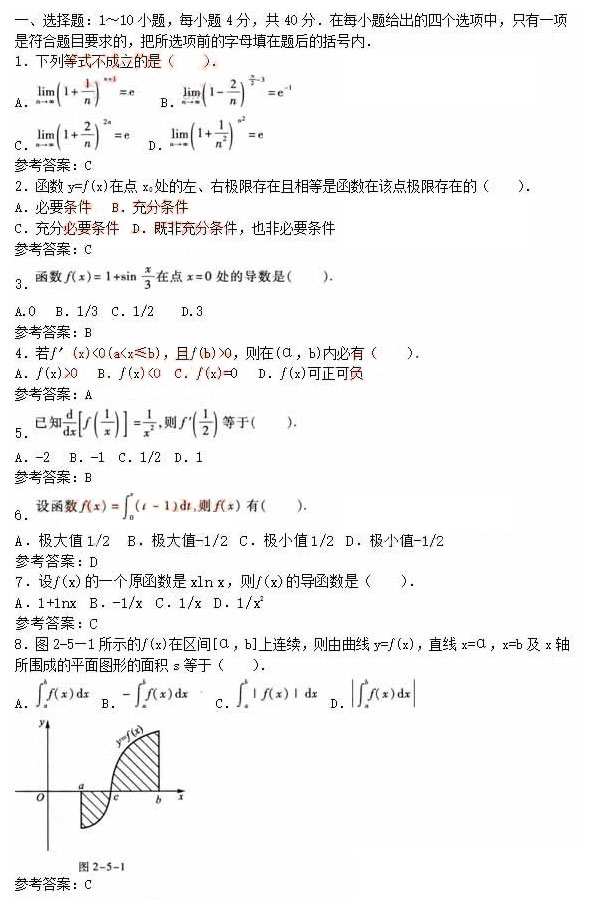 一、选择题：1～10 小题，每小题 4 分，共 40 分．在每小题给出的四个选项中，只有一项
是符合题目要求的，把所选项前的字母填在题后的括号内．
1．下列等式不成立的是（　　）．
A．lim_{n→∞}(1+1/n)^{n+3}=e　B．lim_{n→∞}(1-2/n)^{n/2-3}=e^{-1}
C．lim_{n→∞}(1+2/n)^{2n}=e　D．lim_{n→∞}(1+1/n²)^{n²}=e
参考答案：C
2．函数 y=f(x)在点 x₀处的左、右极限存在且相等是函数在该点极限存在的（　　）．
A．必要条件　B．充分条件
C．充分必要条件　D．既非充分条件，也非必要条件
参考答案：C
3．函数 f(x)=1+sin x/3 在点 x=0 处的导数是(　　)．
A.0　B．1/3　C．1/2　D.3
参考答案：B
4．若f′(x)<0(a<x≤b)，且f(b)>0，则在(α，b)内必有（　　）．
A．f(x)>0　B．f(x)<0　C．f(x)=0　D．f(x)可正可负
参考答案：A
5．已知 d/dx[f(1/x)]=1/x²，则f′(1/2)等于(　　)．
A．-2　B．-1　C．1/2　D．1
参考答案：B
6．设函数 f(x)=∫₀ˣ(t-1)dt,则 f(x) 有(　　)．
A．极大值 1/2　B．极大值-1/2　C．极小值 1/2　D．极小值-1/2
参考答案：D
7．设f(x)的一个原函数是 xln x，则f(x)的导函数是（　　）．
A．1+lnx　B．-1/x　C．1/x　D．1/x²
参考答案：C
8．图 2-5—1 所示的f(x)在区间[α，b]上连续，则由曲线 y=f(x)，直线 x=α，x=b 及 x 轴
所围成的平面图形的面积 s 等于（　　）．
A．∫ₐᵇf(x)dx　B．-∫ₐᵇf(x)dx　C．∫ₐᵇ|f(x)|dx　D．|∫ₐᵇf(x)dx|
y
y=f(x)
O a c b x
图 2-5-1
参考答案：C